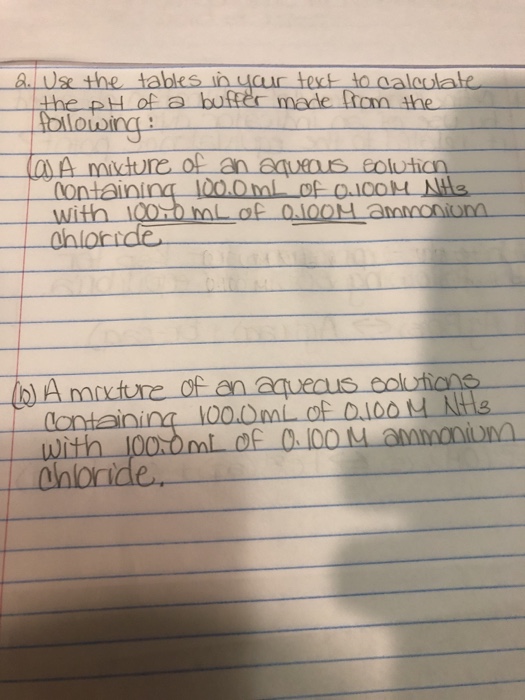 2. Use the tables in your text to calculate
the pH of a buffer made from the
following:
(a) A mixture of an aqueous solution
containing 100.0mL of 0.100M NH3
with 100.0 mL of 0.100M ammonium
chloride
(b) A mixture of an aqueous solutions
containing 100.0mL of 0.100 M NH3
with 100.0mL of 0.100 M ammonium
chloride.